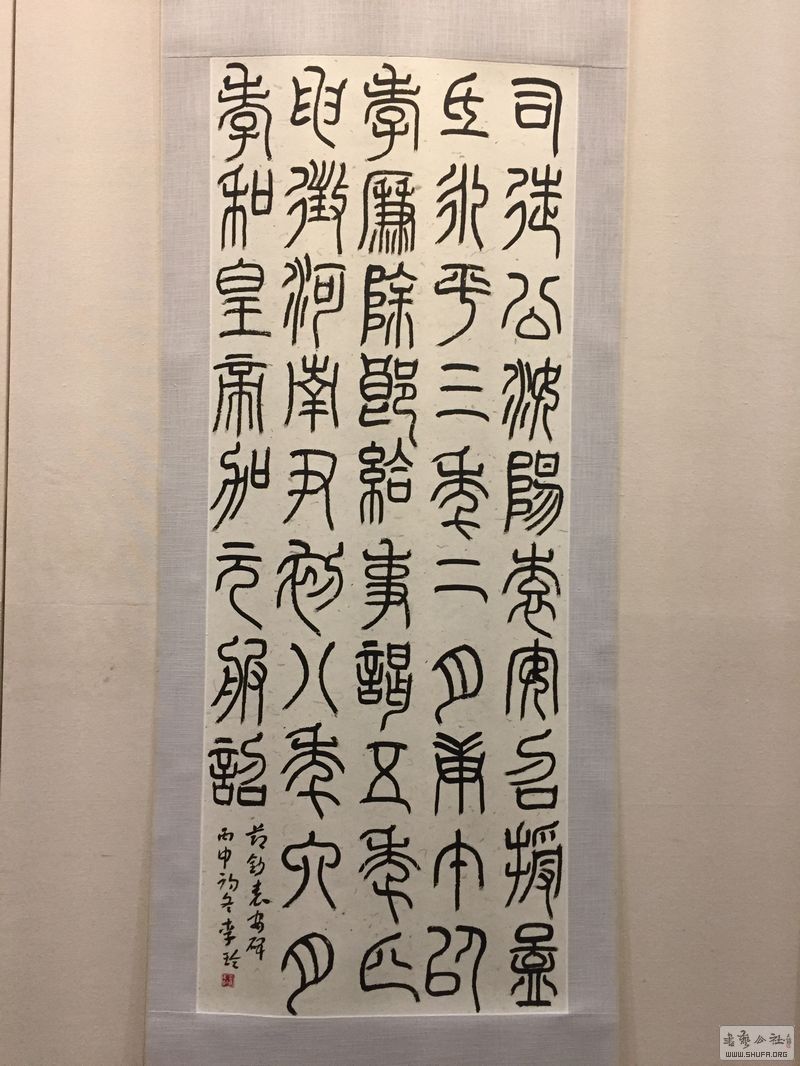 司徒公汝陽袁安召授孟
氏永平三年二月庚午以
孝廉除郎給事謁五年
申徵河南尹初八年六月
孝和皇帝加元服詔
節鈔袁安碑
丙申初冬李玲
書藝公社
WWW.SHUFA.ORG